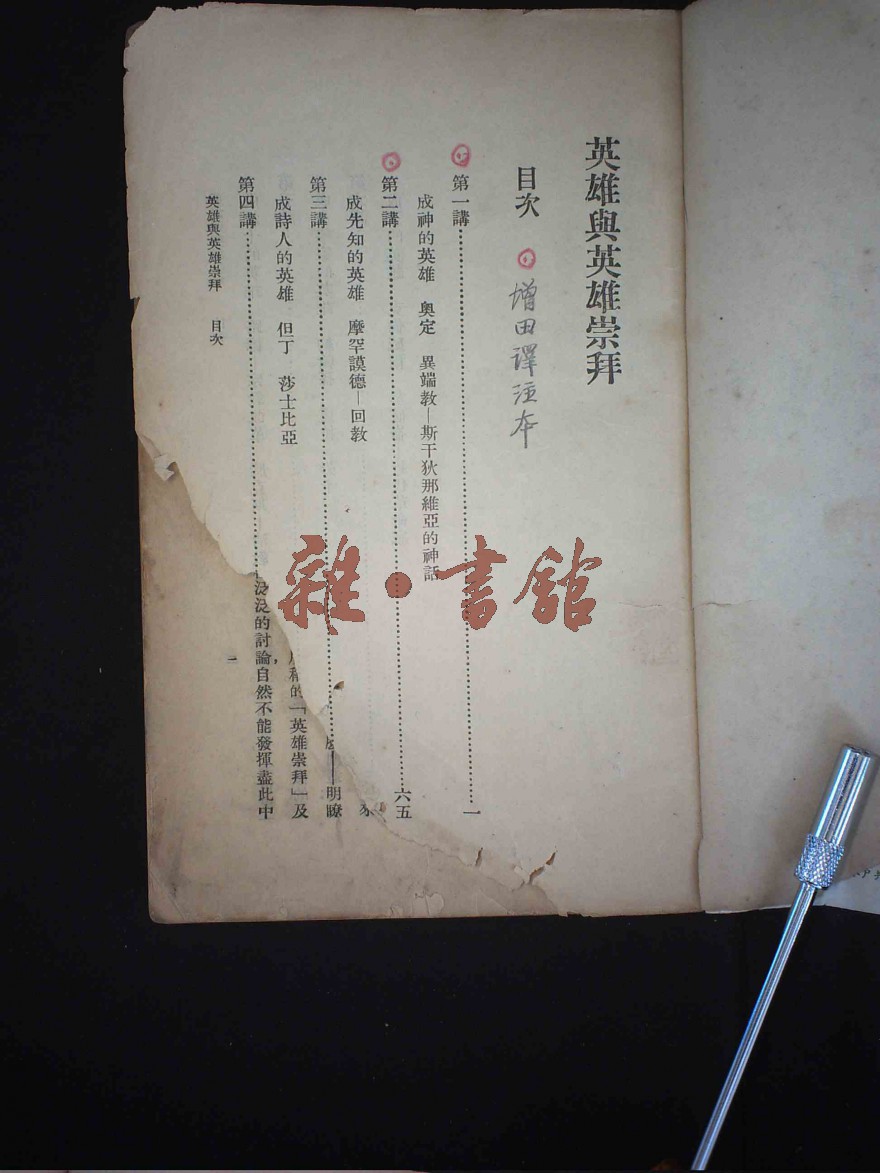 英雄與英雄崇拜
目次
增田譯注本
第一講……一
成神的英雄 奧定 異端教—斯干狄那維亞的神話
第二講……六五
成先知的英雄 摩罕謨德—回教
第三講……
明瞭
成詩人的英雄 但丁 莎士比亞
的「英雄崇拜」及
第四講……
泛泛的討論自然不能發揮盡此中
英雄與英雄崇拜 目次
一
雜·書館